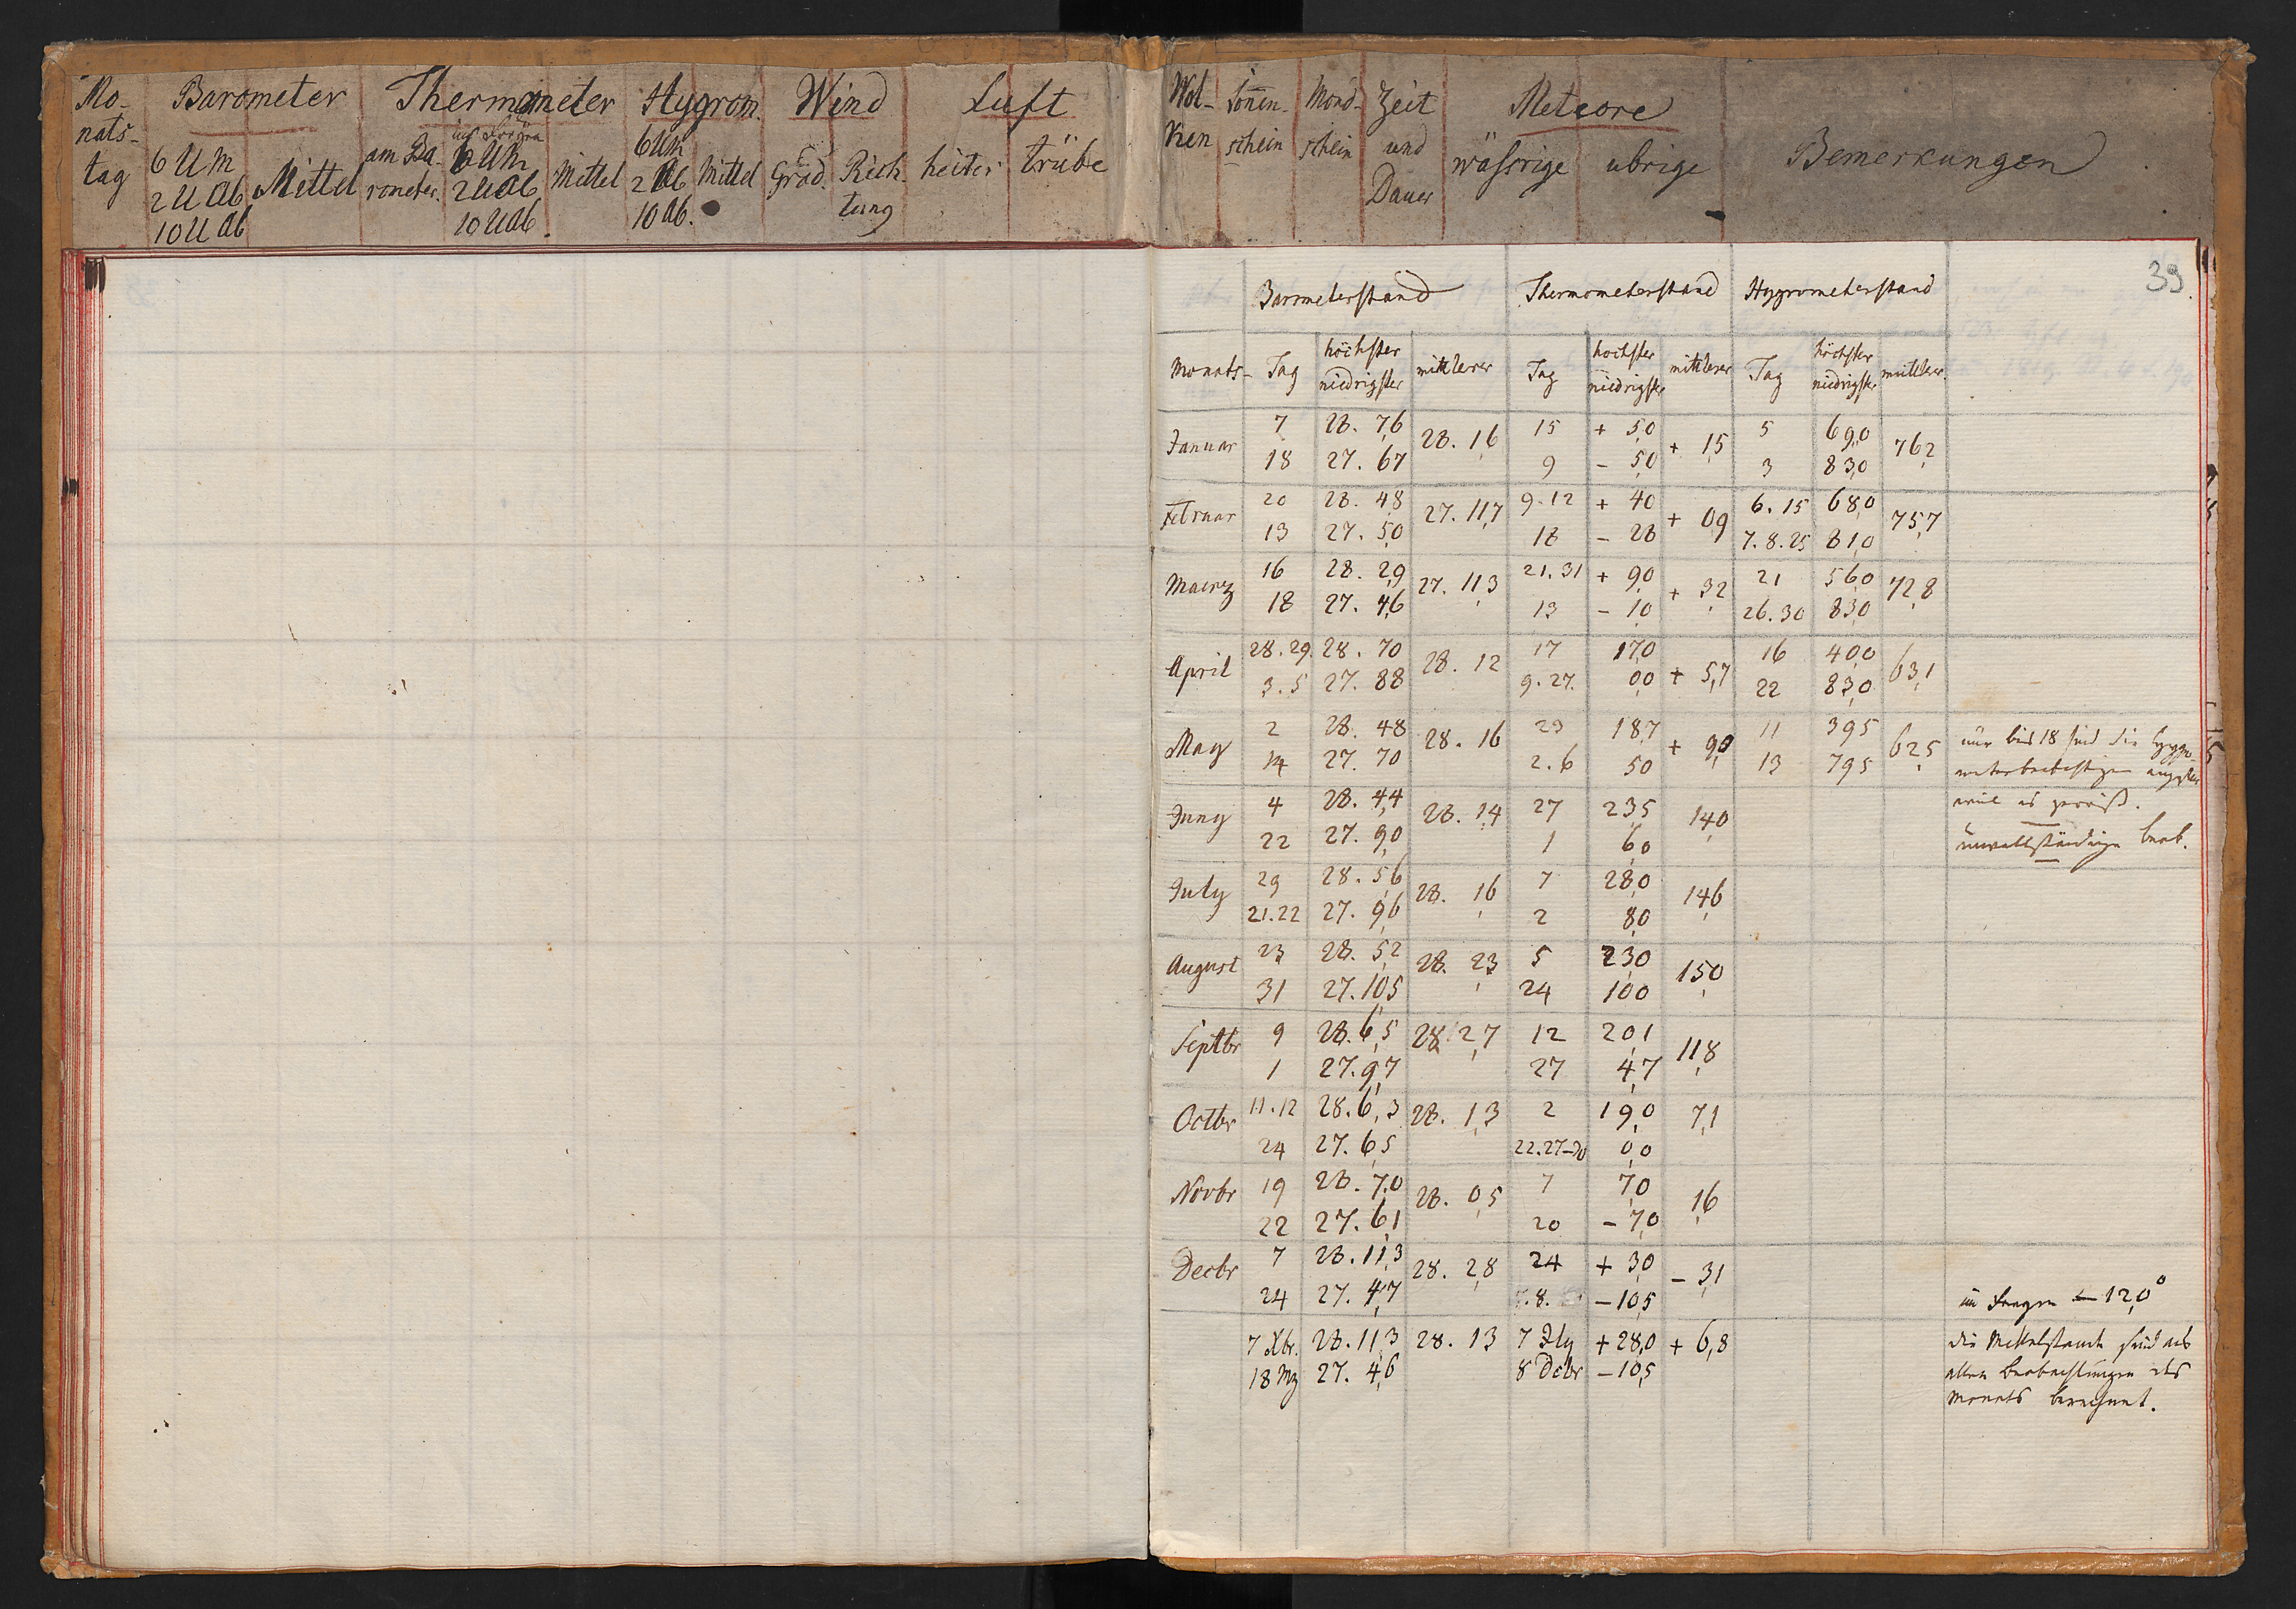 Mo-
nats-
tag
Barometer
6 UM
2 U Ab
10 U Ab
Mittel
Thermometer
am Ba-
rometer.
im Freyen
6 UM
2 U Ab
10 U Ab.
Mittel
Hygrom.
6 UM
2 Ab
10 Ab.
Mittel
Wind
Grad.
Rich-
tung
Luft
heiter
trübe
Wol-
ken
Sonnen-
schein
Mond-
schein
Zeit
und
Dauer
Meteore
wässrige
ubrige
Bemerkungen
39
Barometerstand Thermometerstand Hygrometerstand
Monats- Tag höchster niedrigster mittlerer Tag höchster niedrigster mittlerer Tag höchster niedrigster mittlerer
Januar 7 28. 7,6 28. 1,6 15 + 5,0 + 1,5 5 69,0 76,2
18 27. 6,7 9 - 5,0 3 83,0
Februar 20 28. 4,8 27. 11,7 9.12 + 4,0 + 0,9 6.15 68,0 75,7
13 27. 5,0 18 - 2,8 7.8.25 81,0
Maerz 16 28. 2,9 27. 11,3 21.31 + 9,0 + 3,2 21 56,0 72,8
18 27. 4,6 13 - 1,0 26.30 83,0
April 28.29. 28. 7,0 28. 1,2 17 17,0 + 5,7 16 40,0 63,1
3.5 27. 8,8 9.27. 0,0 22 83,0
May 2 28. 4,8 28. 1,6 29 18,7 + 9,0 11 39,5 62,5
14 27. 7,0 2.6 5,0 13 79,5
nur bis 18 sind die Hygro-
weil es zerriß.
Juny 4 28. 4,4 28. 1,4 27 23,5 14,0
22 27. 9,0 1 6,0
unvollständige beob.
July 29 28. 5,6 28. 1,6 7 28,0 14,6
21.22 27. 9,6 2 8,0
August 23 28. 5,2 28. 2,3 5 23,0 15,0
31 27. 10,5 24 10,0
Septbr 9 28. 6,5 28. 2,7 12 20,1 11,8
1 27. 9,7 27 4,7
Octbr 11.12 28. 6,3 28. 1,3 2 19,0 7,1
24 27. 6,5 22.27-30 0,0
Novbr 19 28. 7,0 28. 0,5 7 7,0 1,6
22 27. 6,1 20 - 7,0
Decbr 7 28. 11,3 28. 2,8 24 + 3,0 - 3,1
24 27. 4,7 8. - 10,5
im Freyen - 12,0°
7 Xbr. 28. 11,3 28. 1,3 7 Jly + 28,0 + 6,8
18 Mz 27. 4,6 8 Dcbr - 10,5
die Mittelstande sind aus
allen Beobachtungen des
Monats berechnet.